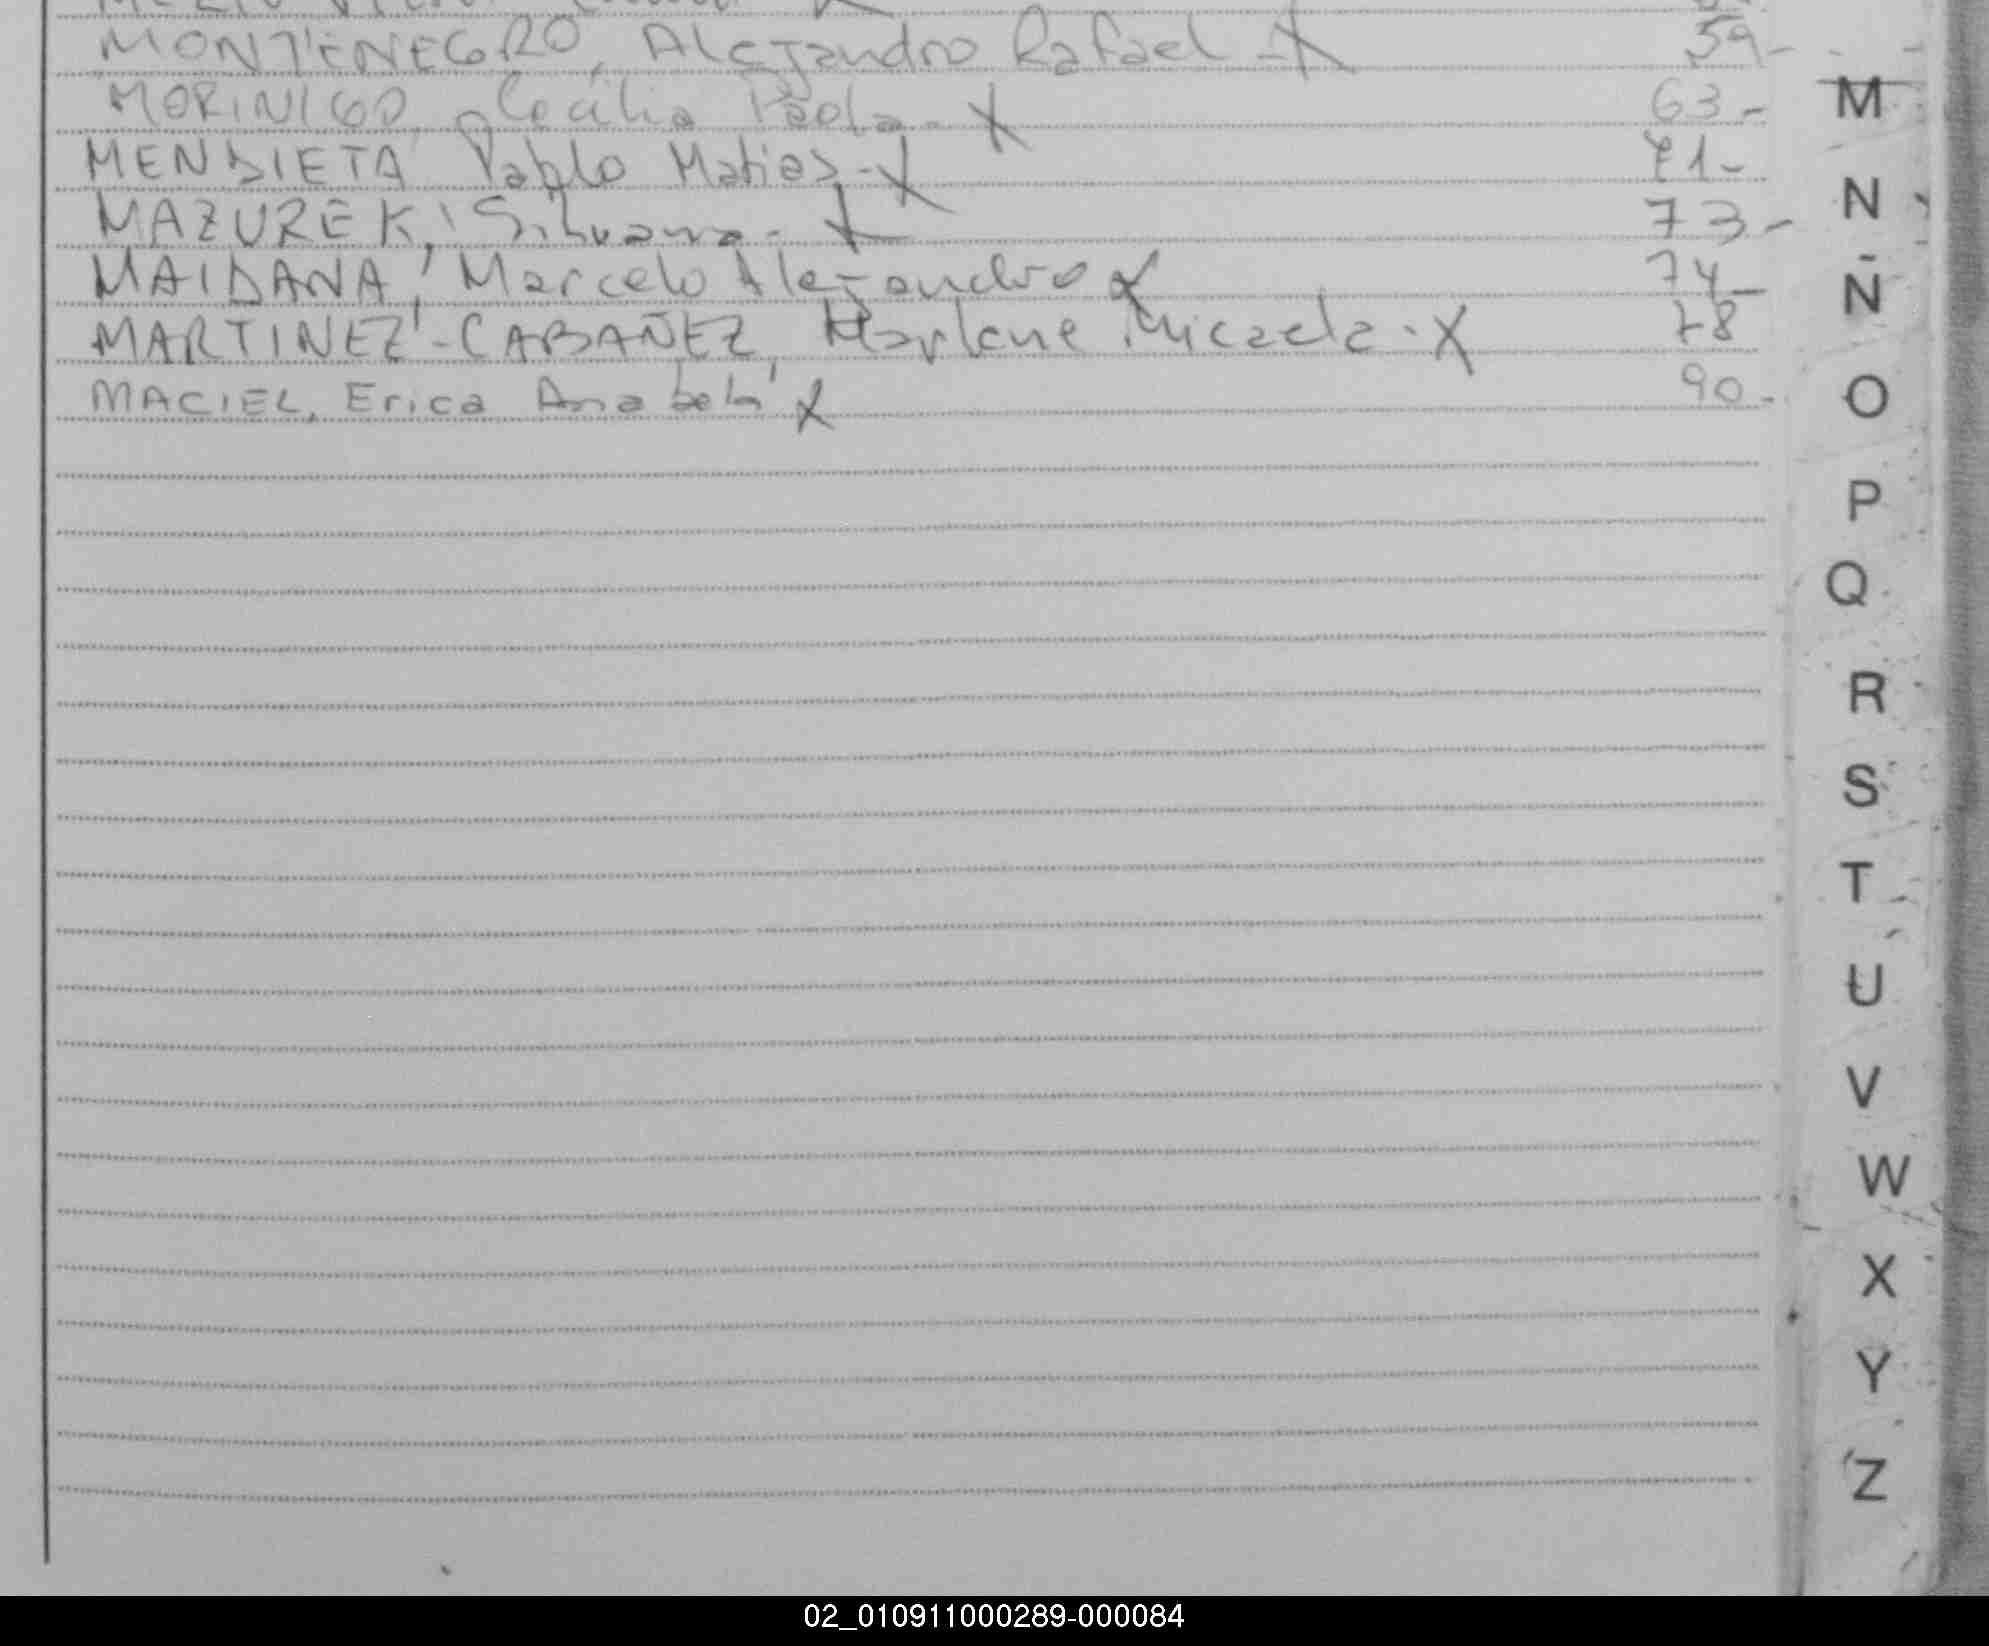 MONTENEGRO, Alejandro Rafael - X 59-
MORINIGO, Cecilia Paola - X 63-
MENDIETA Pablo Matias - X 71-
MAZUREK, Silvana - X 73-
MAIDANA, Marcelo Alejandro X 74-
MARTINEZ-CABAÑEZ, Marlene Micaela - X 78
MACIEL, Erica Anabela X 90-
M
N
Ñ
O
P
Q
R
S
T
U
V
W
X
Y
Z
02_010911000289-000084